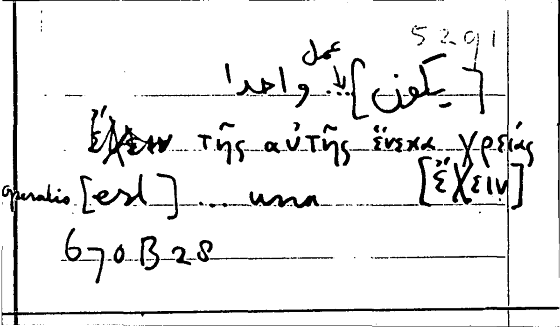 5291
عمل
[يكون] ... واحدا
ἔχειν τῆς αὐτῆς ἕνεκα χρείας
[ἔχειν]
operatio [est] ... una
670B28